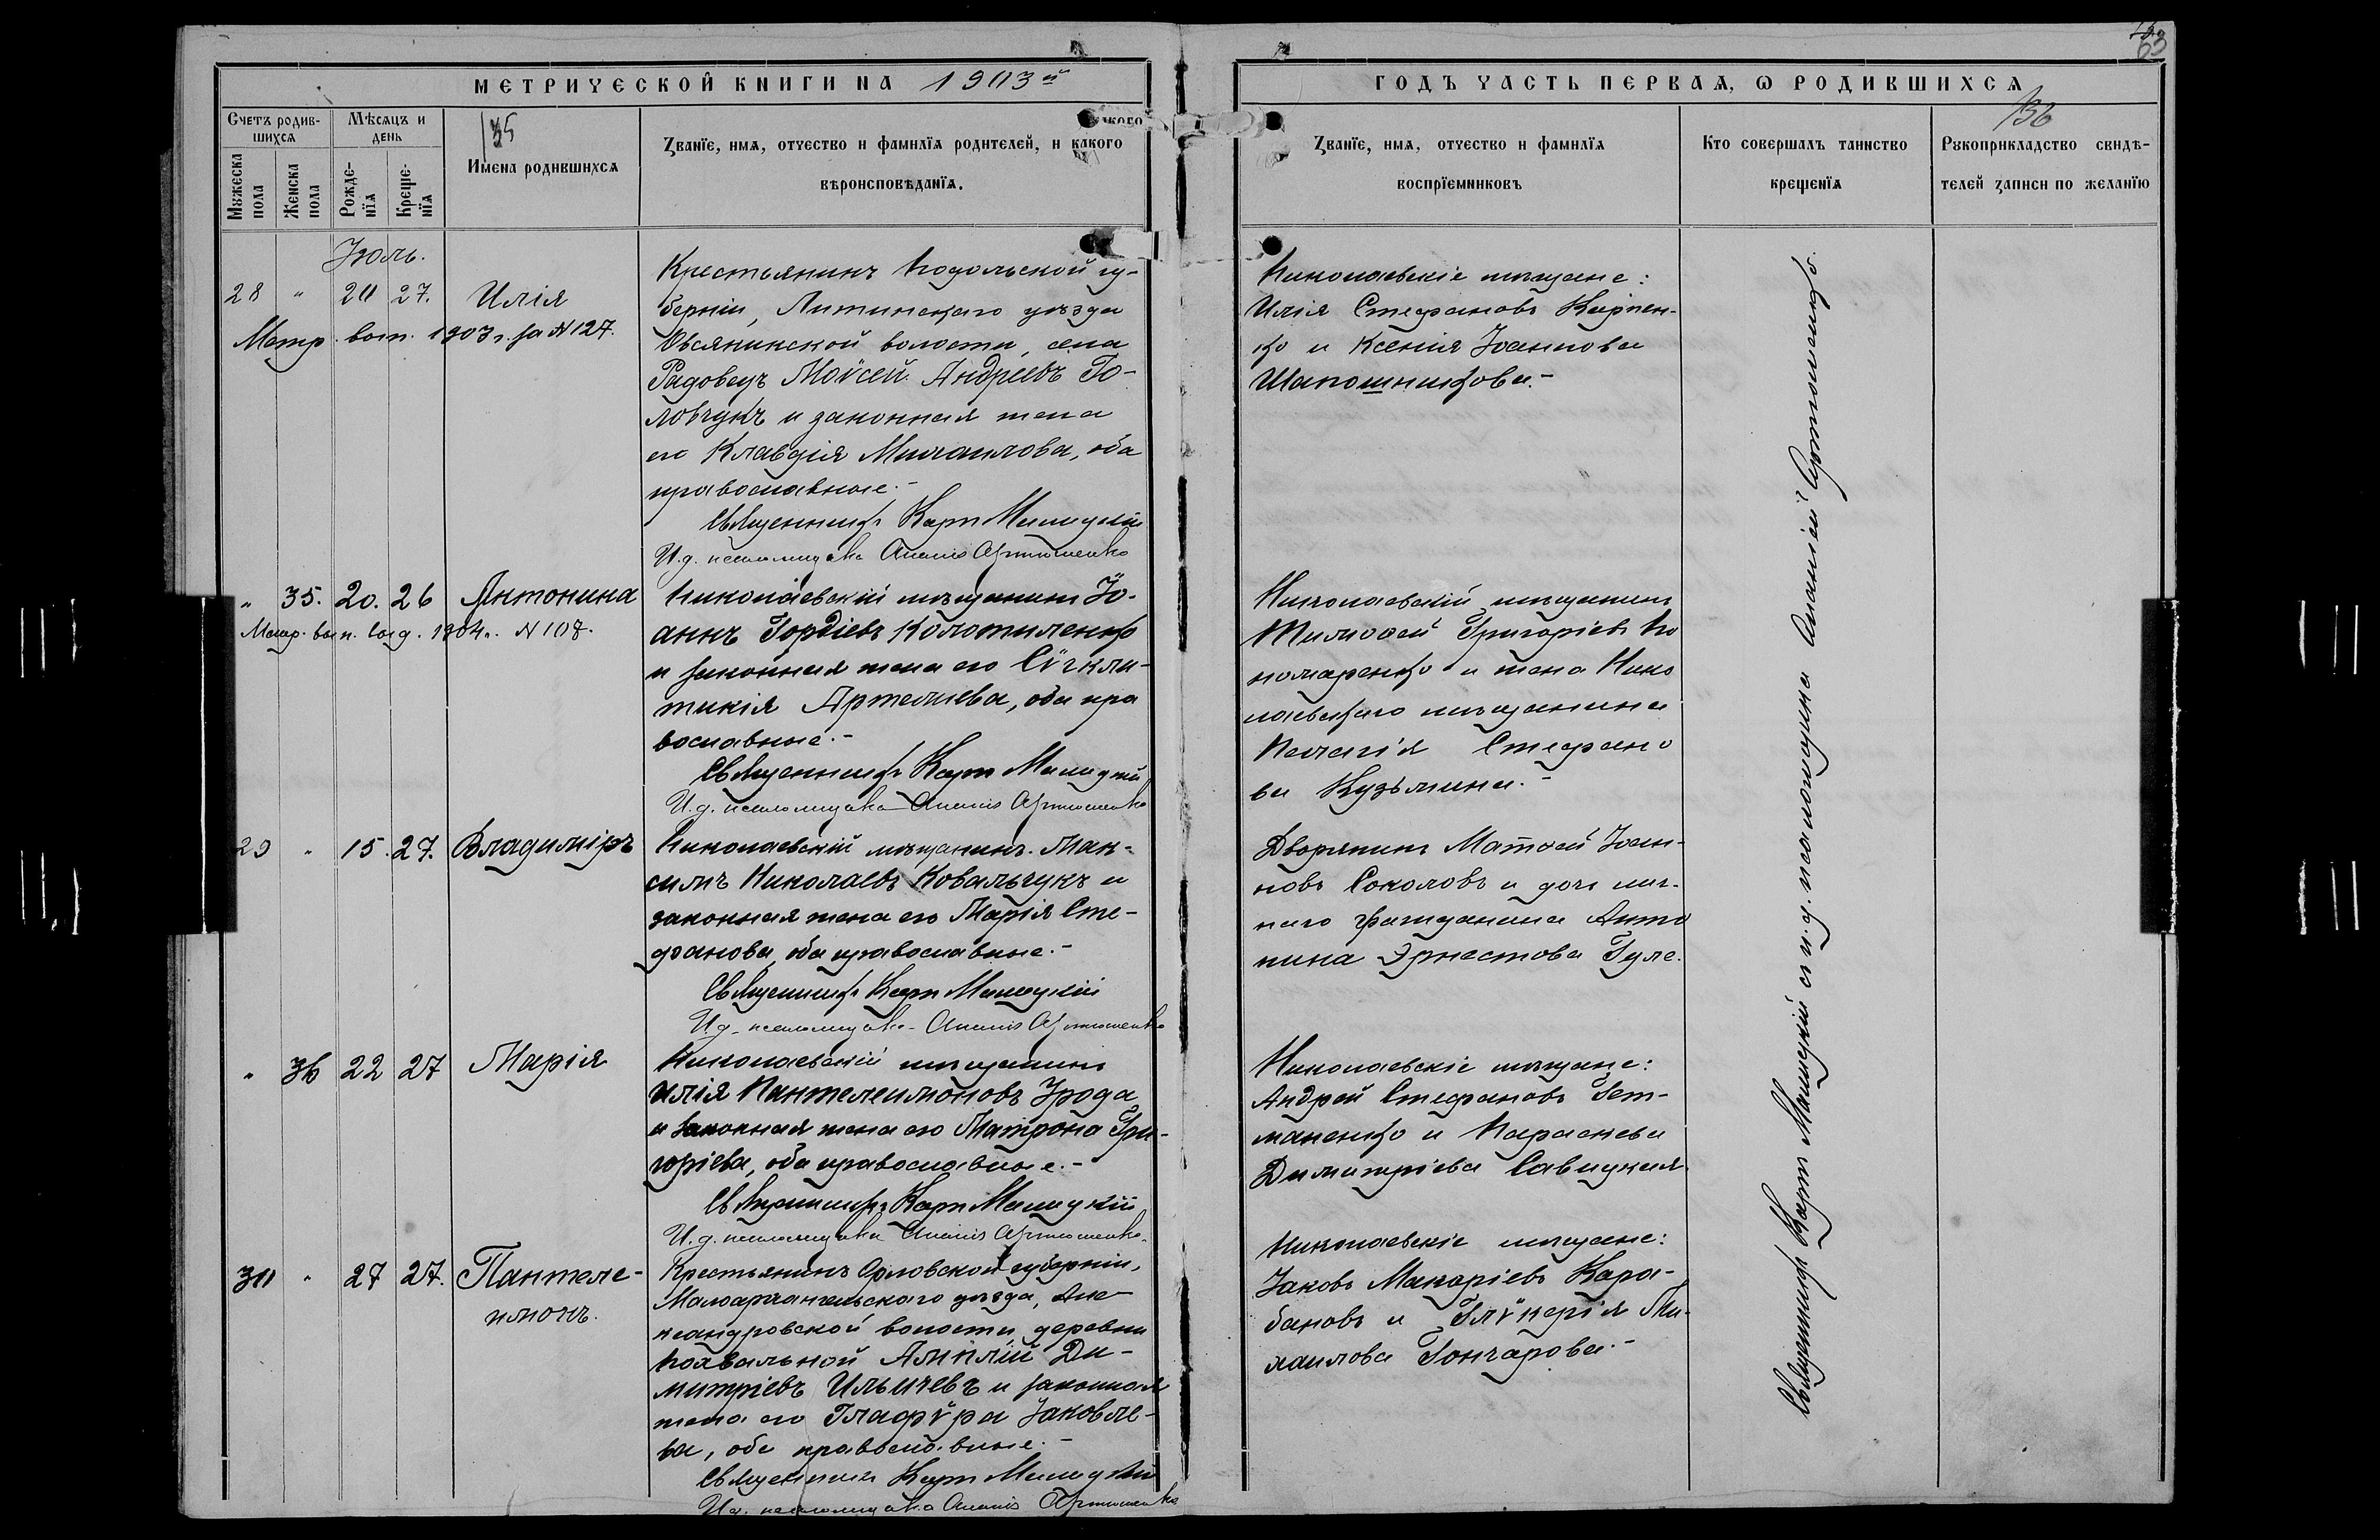 63
МЕТРИЧЕСКОЙ КНИГИ НА 1903й
ГОДЪ ЧАСТЬ ПЕРВАЯ, Ѡ РОДИВШИХСЯ
Счетъ родив-
шихся
Мужеска
пола
Женска
пола
Мѣсяцъ и
день
Рожде-
нїя
Креще-
нїя
35
Имена родившихся
Званїе, имя, отчество и фамилїя родителей, и какого
вѣроисповѣданїя.
Званїе, имя, отчество и фамилїя
воспрїемниковъ
Кто совершалъ таинство
крещенїя
136
Рукоприкладство свидѣ-
телей записи по желанїю
Іюль.
28 " 20 27. Илія
Метр. вып. 1903 г. за N 127.
Крестьянинъ Подольской гу-
берніи, Литинскаго уѣзда
Овсяникской волости, села
Радовецъ Моѵсей Андреевъ Го-
ловчукъ и законная жена
его Клавдія Михаилова, оба
православные.-
Священникъ Карп Малицкій
И.д. псаломщика Ананій Артюшенко
Николаевскіе мѣщане:
Илія Стефановъ Карпен-
ко и Ксенія Іоаннова
Шапошникова.-
" 35. 20. 26 Антонина
Метр. вып. выд. 1904 г. N 108.
Николаевскій мѣщанинъ Іо-
аннъ Гордіевъ Колотиленко
и законная жена его Сѵгкли-
тикія Артемиева, оба пра
вославные.-
Священникъ Карп Малицкій
И.д. псаломщика Ананій Артюшенко
Николаевскій мѣщанинъ
Тимоѳей Григоріевъ По
номаренко и жена Нико
лаевскаго мѣщанина
Пелагія Стефано
ва Кузьмина.-
29 " 15. 27. Владиміръ
Николаевскій мѣщанинъ Мак-
симъ Николаевъ Ковальчукъ и
законная жена его Марія Сте-
фанова, оба православные.-
Священникъ Карп Малицкій
И.д. псаломщика Ананій Артюшенко
Дворянинъ Матѳей Іоан-
новъ Соколовъ и дочь лич-
наго гражданина Анто
нина Эрнестова Гуле.
" 36 22 27 Марія
Николаевскій мѣщанинъ
Илія Пантелеимоновъ Урода
и законная жена его Матрона Гри-
горіева, оба православные.-
Священникъ Карп Малицкій
И.д. псаломщика Ананій Артюшенко.
Николаевскіе мѣщане:
Андрей Стефановъ Гет-
маненко и Параскева
Димитріева Савицкая
30 " 27 27. Пантеле-
имонъ.
Крестьянинъ Орловской губерніи,
Малоархангельскаго уѣзда, Але-
ксандровской волости, деревни
Похвальной Амплій Ди-
митріевъ Ильичевъ и законная
жена его Глафѵра Іаковле-
ва, оба православные.-
Священникъ Карп Малицкій
И.д. псаломщика Ананій Артюшенко
Николаевскіе мѣщане:
Іаковъ Макаріевъ Кара-
бановъ и Глѵкерія Ми-
хаилова Гончарова.-
Священникъ Карп Малицкій съ и.д. псаломщика Ананіей Артюшенко.